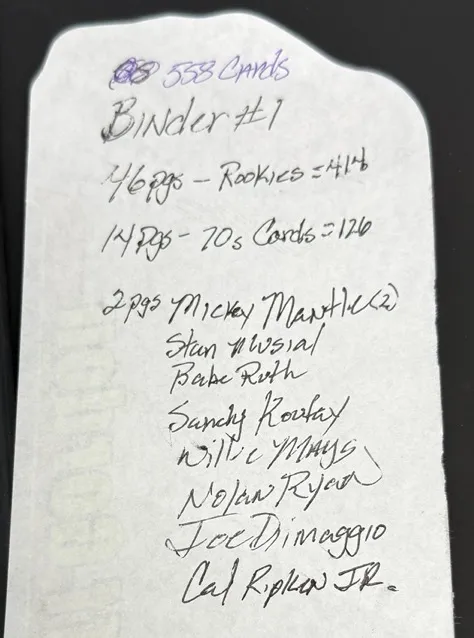 558 Cards
Binder #1
46pgs - Rookies = 414
14pgs - 70s Cards = 126
2pgs Mickey Mantle (2)
Stan Musial
Babe Ruth
Sandy Koufax
Willie Mays
Nolan Ryan
Joe Dimaggio
Cal Ripken JR.